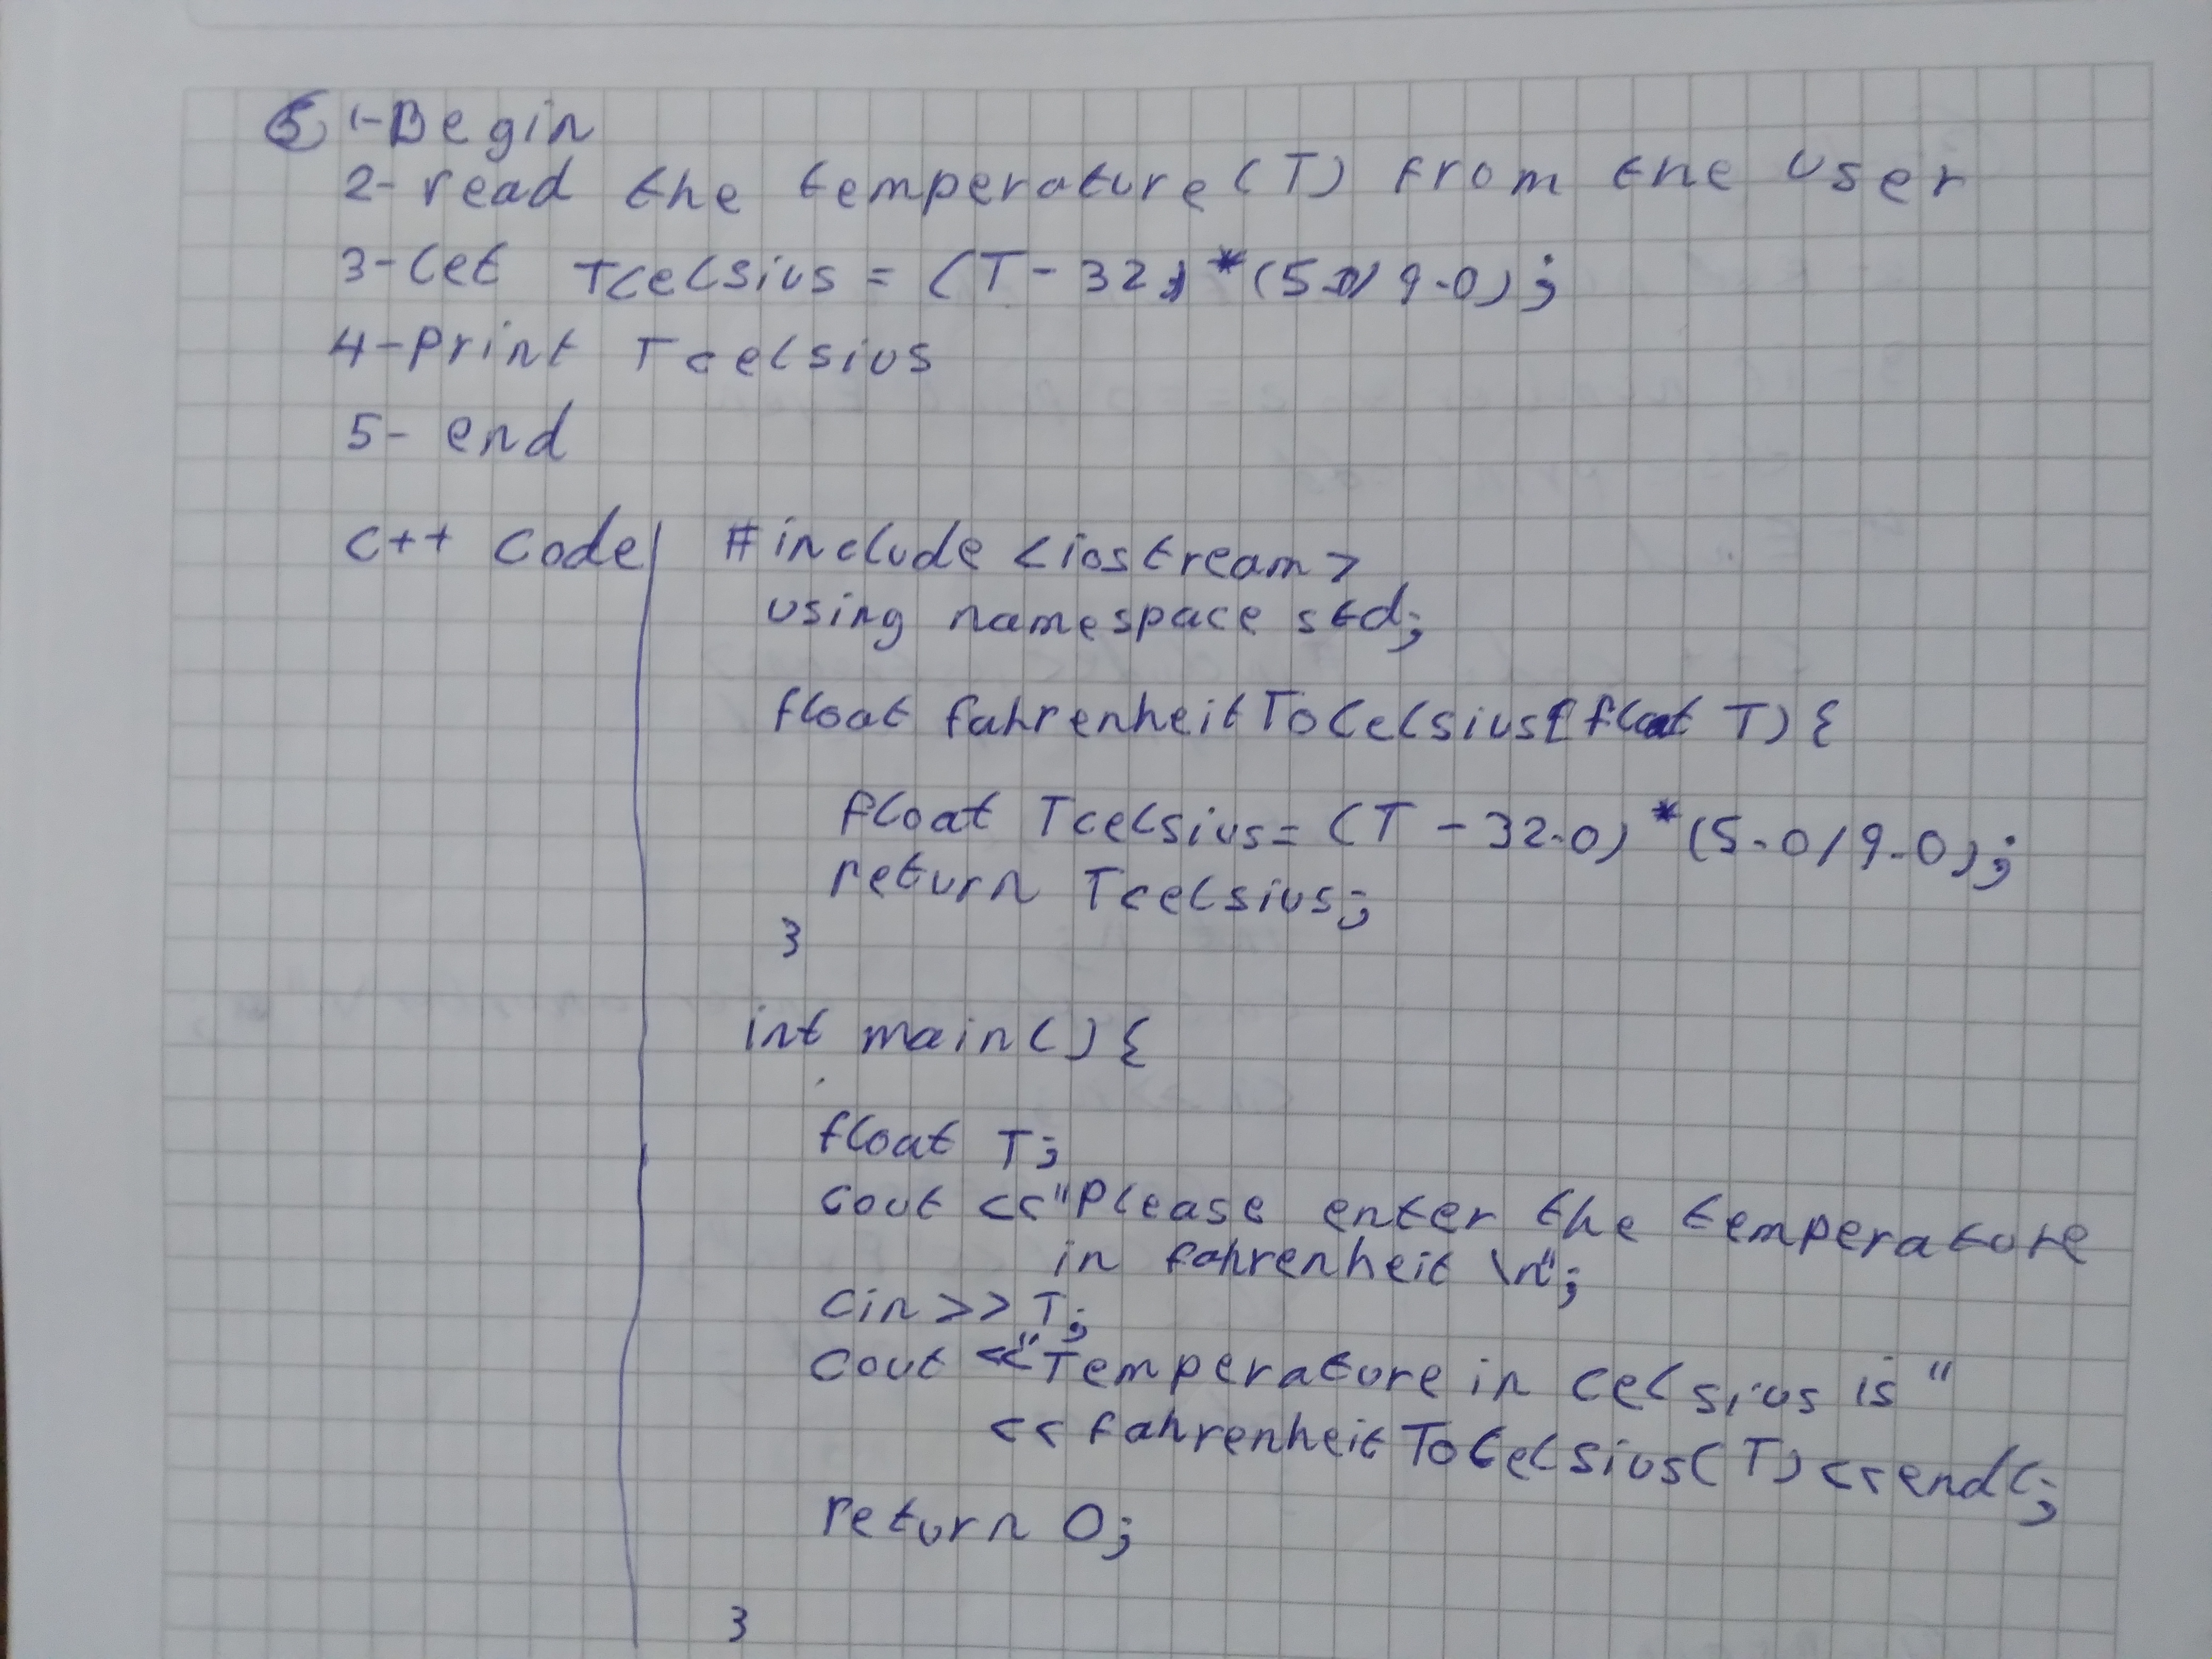 5) 1-Begin
2- read the temperature (T) from the user
3- let Tcelsius = (T - 32) * (5.0/9.0);
4- print Tcelsius
5- end
C++ Code
#include <iostream>
using namespace std;
float fahrenheitToCelsius(float T) {
float Tcelsius = (T - 32.0) * (5.0/9.0);
return Tcelsius;
}
int main() {
float T;
cout << "Please enter the temperature
in fahrenheit \n";
cin >> T;
cout << "Temperature in celsius is "
<< fahrenheitToCelsius(T) << endl;
return 0;
}